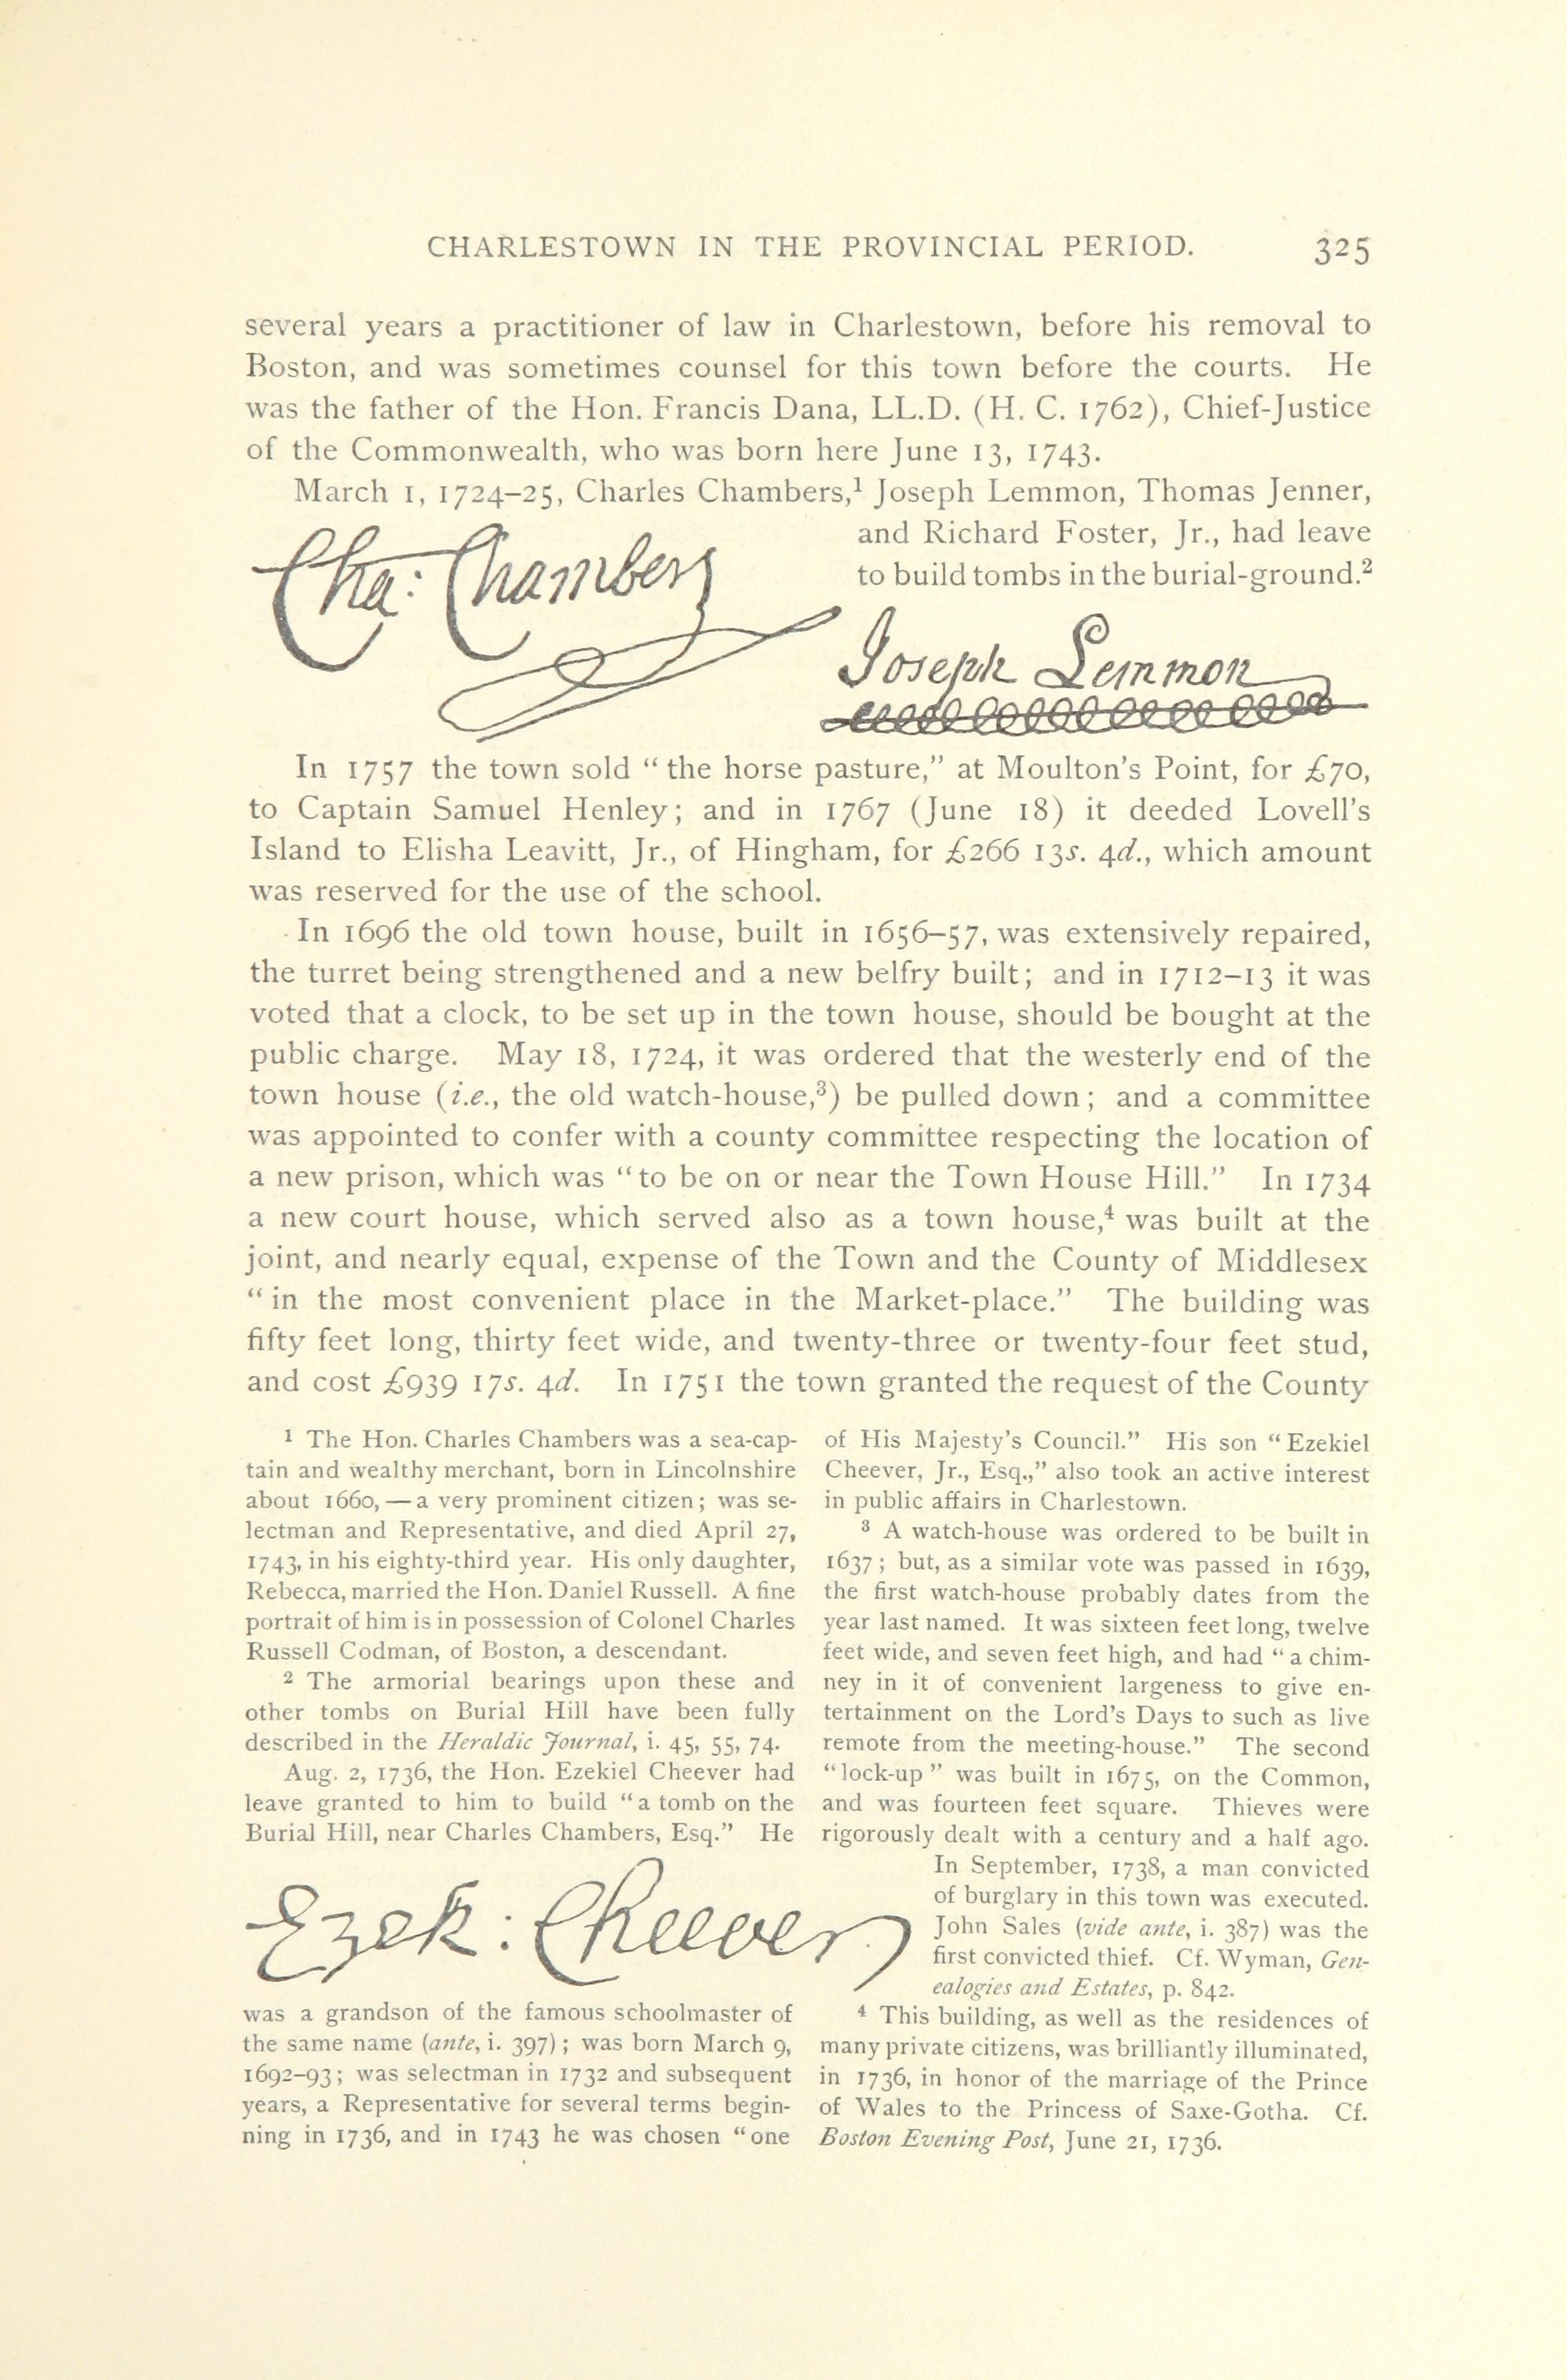 CHARLESTOWN IN THE PROVINCIAL PERIOD. 325
several years a practitioner of law in Charlestown, before his removal to
Boston, and was sometimes counsel for this town before the courts. He
was the father of the Hon. Francis Dana, LL.D. (H. C. 1762), Chief-Justice
of the Commonwealth, who was born here June 13, 1743.
March 1, 1724–25, Charles Chambers,¹ Joseph Lemmon, Thomas Jenner,
and Richard Foster, Jr., had leave
to build tombs in the burial-ground.²
Cha: Chambers
Joseph Lemmon
In 1757 the town sold “the horse pasture,” at Moulton's Point, for £70,
to Captain Samuel Henley; and in 1767 (June 18) it deeded Lovell's
Island to Elisha Leavitt, Jr., of Hingham, for £266 13s. 4d., which amount
was reserved for the use of the school.
In 1696 the old town house, built in 1656–57, was extensively repaired,
the turret being strengthened and a new belfry built; and in 1712–13 it was
voted that a clock, to be set up in the town house, should be bought at the
public charge. May 18, 1724, it was ordered that the westerly end of the
town house (i.e., the old watch-house,³) be pulled down; and a committee
was appointed to confer with a county committee respecting the location of
a new prison, which was “to be on or near the Town House Hill.” In 1734
a new court house, which served also as a town house,⁴ was built at the
joint, and nearly equal, expense of the Town and the County of Middlesex
“in the most convenient place in the Market-place.” The building was
fifty feet long, thirty feet wide, and twenty-three or twenty-four feet stud,
and cost £939 17s. 4d. In 1751 the town granted the request of the County
¹ The Hon. Charles Chambers was a sea-cap-
tain and wealthy merchant, born in Lincolnshire
about 1660,—a very prominent citizen; was se-
lectman and Representative, and died April 27,
1743, in his eighty-third year. His only daughter,
Rebecca, married the Hon. Daniel Russell. A fine
portrait of him is in possession of Colonel Charles
Russell Codman, of Boston, a descendant.
² The armorial bearings upon these and
other tombs on Burial Hill have been fully
described in the Heraldic Journal, i. 45, 55, 74.
Aug. 2, 1736, the Hon. Ezekiel Cheever had
leave granted to him to build “a tomb on the
Burial Hill, near Charles Chambers, Esq.” He
Ezek: Cheever
was a grandson of the famous schoolmaster of
the same name (ante, i. 397); was born March 9,
1692–93; was selectman in 1732 and subsequent
years, a Representative for several terms begin-
ning in 1736, and in 1743 he was chosen “one
of His Majesty's Council.” His son “Ezekiel
Cheever, Jr., Esq.,” also took an active interest
in public affairs in Charlestown.
³ A watch-house was ordered to be built in
1637; but, as a similar vote was passed in 1639,
the first watch-house probably dates from the
year last named. It was sixteen feet long, twelve
feet wide, and seven feet high, and had “a chim-
ney in it of convenient largeness to give en-
tertainment on the Lord's Days to such as live
remote from the meeting-house.” The second
“lock-up” was built in 1675, on the Common,
and was fourteen feet square. Thieves were
rigorously dealt with a century and a half ago.
In September, 1738, a man convicted
of burglary in this town was executed.
John Sales (vide ante, i. 387) was the
first convicted thief. Cf. Wyman, Gen-
ealogies and Estates, p. 842.
⁴ This building, as well as the residences of
many private citizens, was brilliantly illuminated,
in 1736, in honor of the marriage of the Prince
of Wales to the Princess of Saxe-Gotha. Cf.
Boston Evening Post, June 21, 1736.